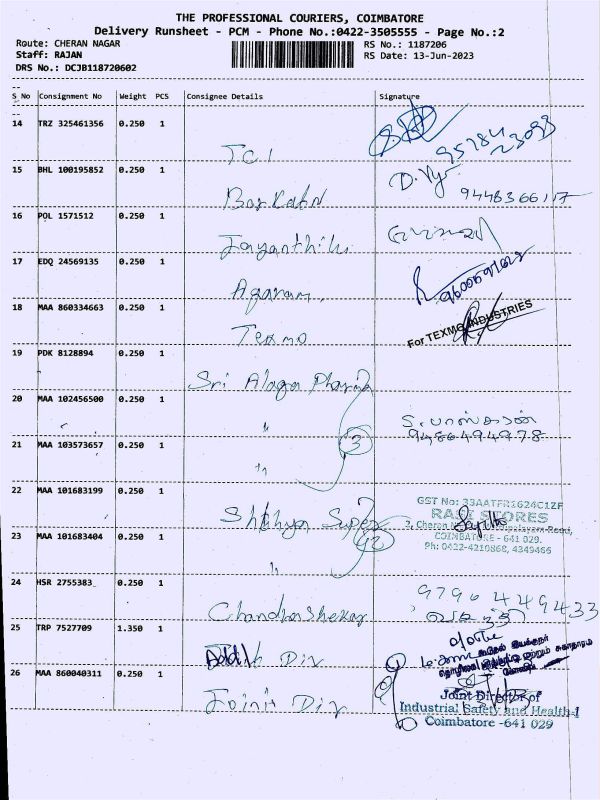 THE PROFESSIONAL COURIERS, COIMBATORE
Delivery Runsheet - PCM - Phone No.:0422-3505555 - Page No.:2
Route: CHERAN NAGAR
Staff: RAJAN
DRS No.: DCJB118720602
RS No.: 1187206
RS Date: 13-Jun-2023
S No Consignment No Weight PCS Consignee Details Signature
14 TRZ 325461356 0.250 1
TCI
15 BHL 100195852 0.250 1
D.
9448366117
16 POL 1571512 0.250 1
17 EDQ 24569135 0.250 1
Agaram
18 MAA 860334663 0.250 1
Texmo
For TEXMO INDUSTRIES
19 PDK 8128894 0.250 1
Sri Alaga Pharma
20 MAA 102456500 0.250 1
"
S. பாஸ்கரன்
9486494978
21 MAA 103573657 0.250 1
"
3
22 MAA 101683199 0.250 1
GST No: 33AATFR1624C1ZF
RASI STORES
COIMBATORE - 641 029.
Ph: 0422-4210868, 4349466
23 MAA 101683404 0.250 1
"
24 HSR 2755383 0.250 1
Chandrashekar
9796449433
25 TRP 7527709 1.350 1
Div
26 MAA 860040311 0.250 1
Joint Dir
Joint Director of
Industrial Safety and Health-I
Coimbatore -641 029